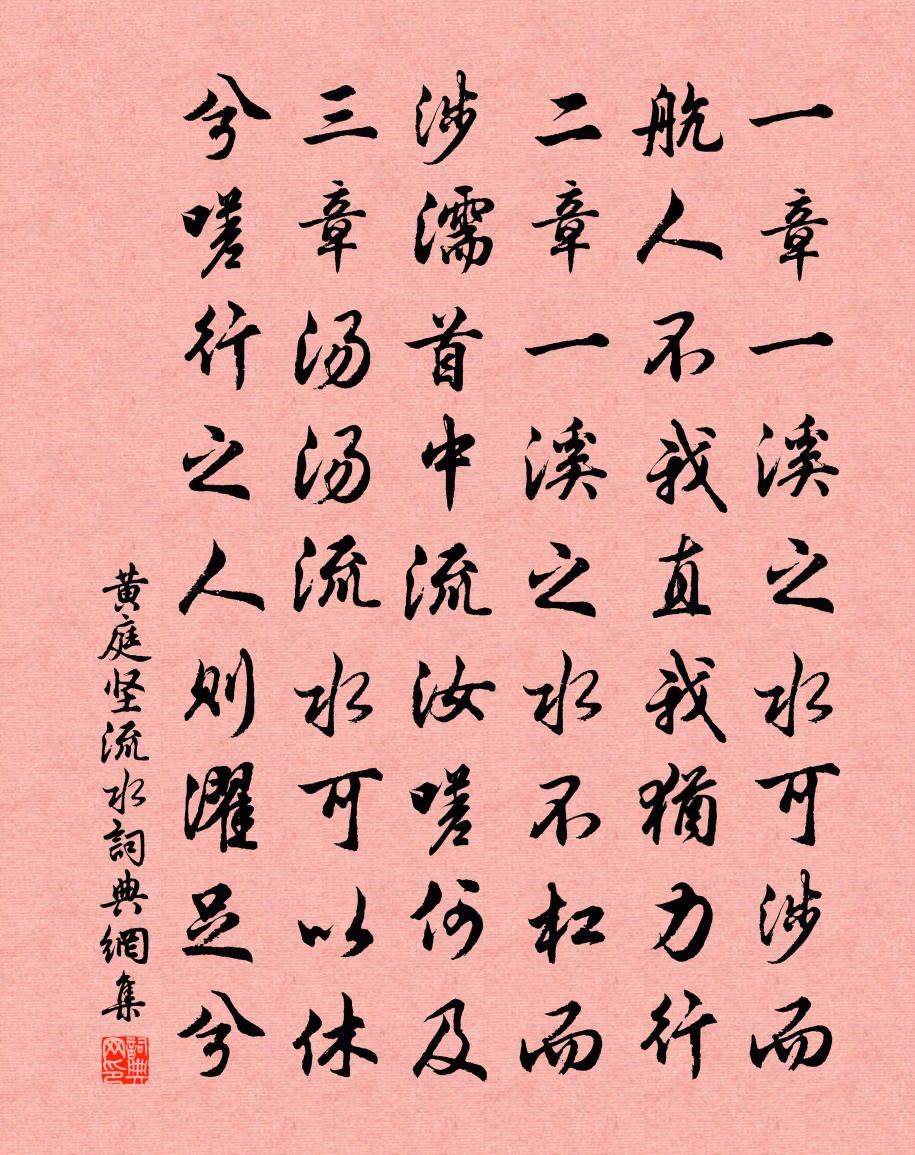 一章一溪之水可涉而
航人不我直我猶力行
二章一溪之水不杠而
涉濡首中流汝嗟何及
三章汤汤流水可以休
兮嗟行之人则濯足兮
黄庭坚流水詞典網集
詞典网印